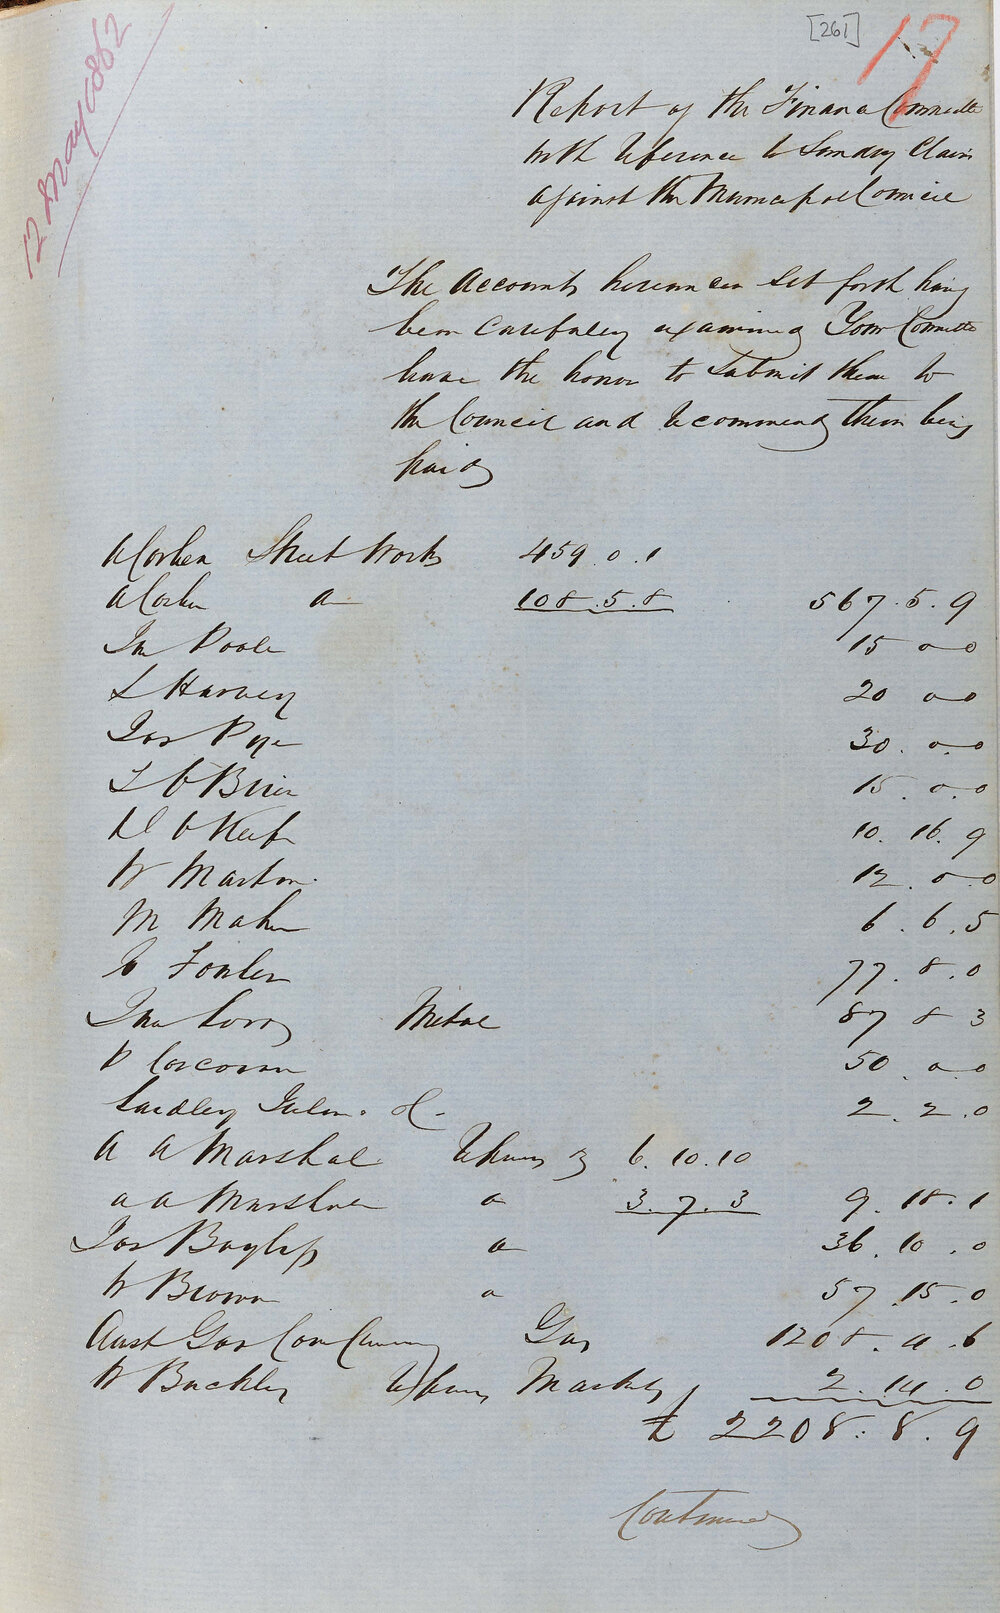 [261] 17
12 May 1862
Report of the Finance Committee
with reference to Sundry Claims
against the Municipal Council
The Accounts hereunder set forth having
been Carefully examined Your Committee
have the honor to Submit them to
the Council and recommend them being
paid
A Corben Street Works 459.0.1
A Corben do 108.5.8 567.5.9
Jno Poole 15 0 0
S Harvey 20 0 0
Jas Pye 30.0.0
T O'Brien 15.0.0
D O'Keefe 10.16.9
W Marton 12.0.0
M Maher 6.6.5
C Fowler 77.8.0
Jno Metal 87 8 3
P Corcoran 50.0.0
2.2.0
A A Marshall Repairing 6.10.10
A A Marshall do 3.7.3 9.18.1
Jas Bayliss do 36.10.0
W Brown do 57.15.0
Aust Gas Company Gas 1208.4.6
W Buckley Repairing Markets 2.14.0
£ 2208.8.9
Continued